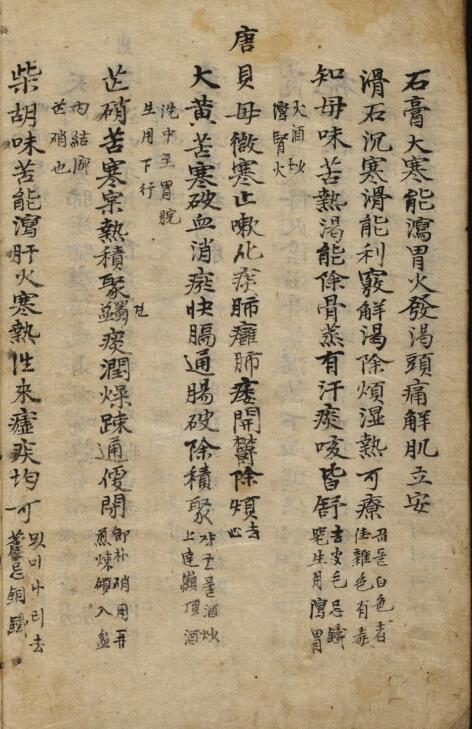 石膏大寒能瀉胃火發渴頭痛解肌立安
滑石沉寒滑能利竅解渴除煩湿熱可療
白色者
佳雜色有毒
知母味苦熱渴能除骨蒸有汗痰咳皆舒
去皮毛忌鐵
生用瀉胃
火酒炒
瀉腎火
唐
貝母微寒止嗽化痰肺癰肺痿開鬱除煩
去心
大黄苦寒破血消痰快膈通腸破除積聚
酒炒
上達巓頂酒
洗中至胃脘
生用下行
芒硝苦寒宲熱積聚蠲痰潤燥踈通便閉
即朴硝用再
煎煉傾入盆
内結
芒硝也
柴胡味苦能瀉肝火寒熱徃來瘧疾均可
뫼미나리去
蘆忌銅鐵